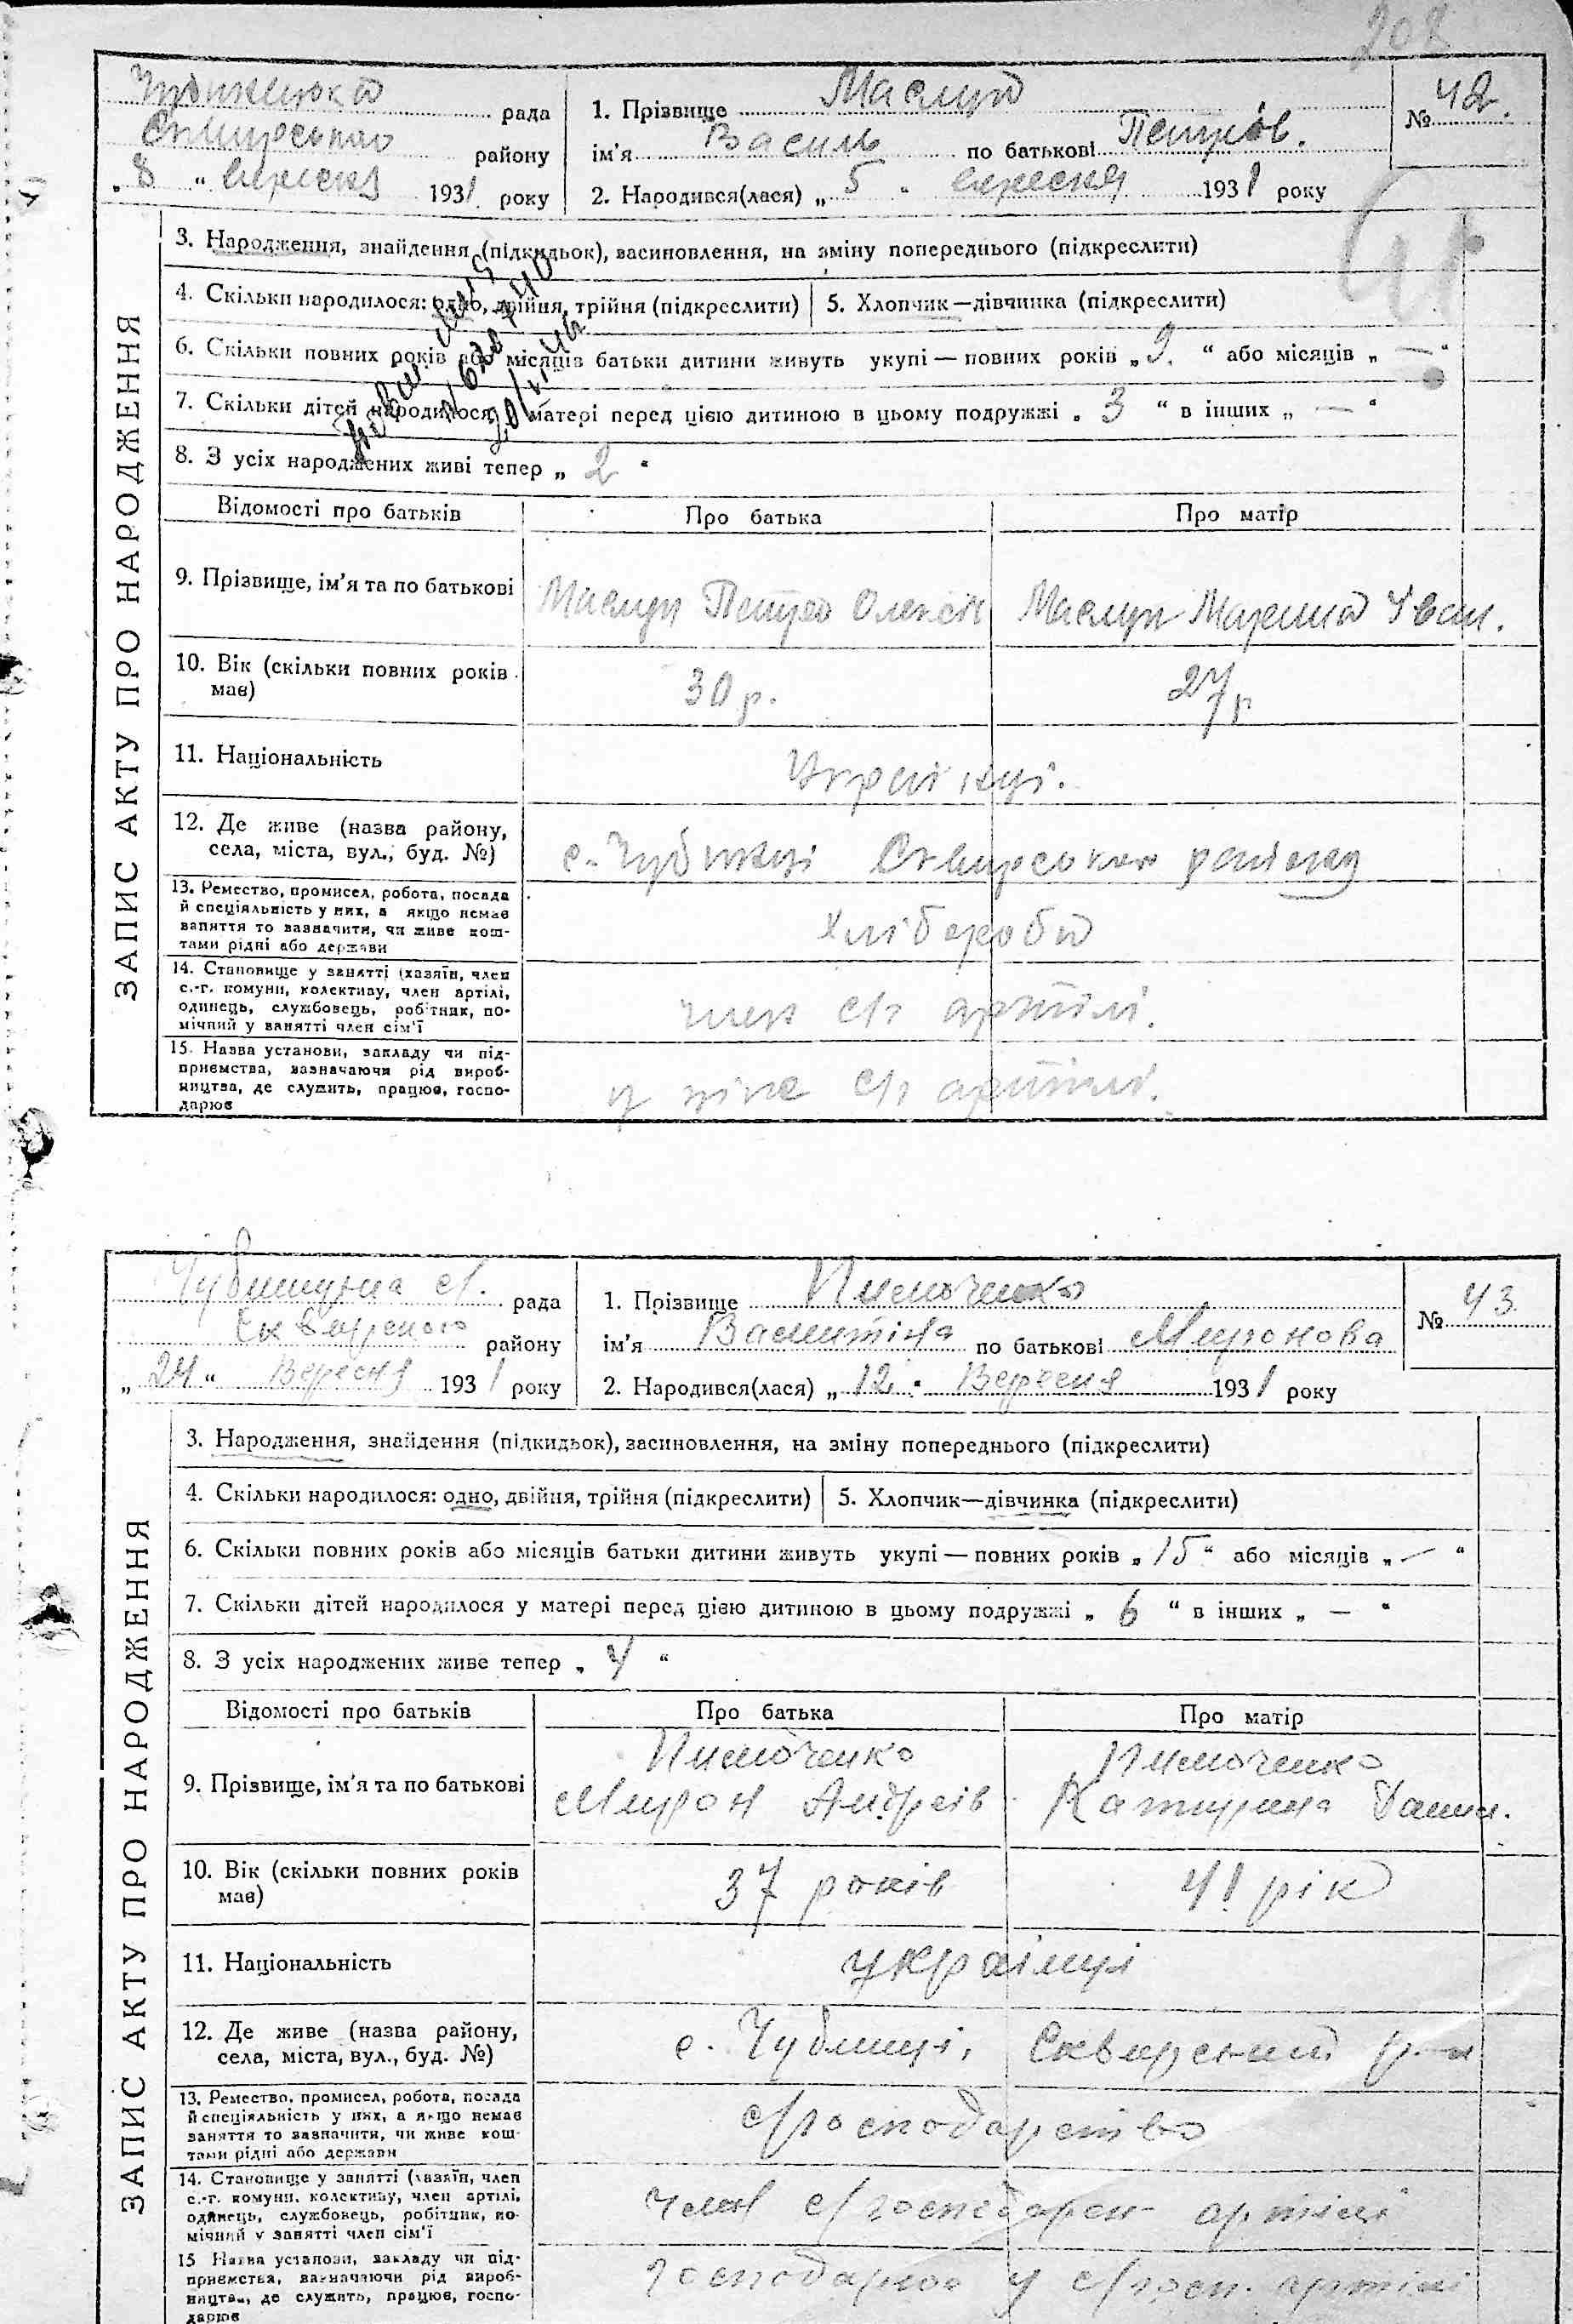 208
Чубинецка рада
Сквирського району
„8“ вересня 1931 року
1. Прізвище Маслун
ім'я Василь по батькові Петров.
2. Народився(лася) „5“ вересня 1931 року
№ 42.
ЗАПИС АКТУ ПРО НАРОДЖЕННЯ
3. Народження, знайдення (підкидьок), засиновлення, на зміну попереднього (підкреслити)
4. Скільки народилося: одно, двійня, трійня (підкреслити) 5. Хлопчик—дівчинка (підкреслити)
6. Скільки повних років або місяців батьки дитини живуть укупі — повних років „9.“ або місяців „—“
7. Скільки дітей народилося у матері перед цією дитиною в цьому подружжі „3“ в інших „—“
8. З усіх народжених живі тепер „2“
Відомості про батьків Про батька Про матір
9. Прізвище, ім'я та по батькові Маслун Петро Олексів Маслун Марина Іван.
10. Вік (скільки повних років має) 30 р. 27 р
11. Національність Українці.
12. Де живе (назва району,
села, міста, вул., буд. №) с. Чубинці Сквирського району
13. Ремество, промисел, робота, посада
й спеціяльність у них, а якщо немає
заняття то зазначити, чи живе кош-
тами рідні або держави
Хлібороби
14. Становище у занятті (хазяїн, член
с.-г. комуни, колективу, член артілі,
одинець, службовець, робітник, по-
мічний у занятті член сім'ї
член с/г артілі.
15. Назва установи, закладу чи під-
приємства, зазначаючи рід вироб-
ництва, де служить, працює, госпо-
дарює
с/г артілі.
Чубинецька с. рада
Сквирского району
„24“ Вересня 1931 року
1. Прізвище
ім'я Валитіна по батькові Миронова
2. Народився(лася) „12“ Вересня 1931 року
№ 43.
ЗАПИС АКТУ ПРО НАРОДЖЕННЯ
3. Народження, знайдення (підкидьок), засиновлення, на зміну попереднього (підкреслити)
4. Скільки народилося: одно, двійня, трійня (підкреслити) 5. Хлопчик—дівчинка (підкреслити)
6. Скільки повних років або місяців батьки дитини живуть укупі — повних років „15“ або місяців „—“
7. Скільки дітей народилося у матері перед цією дитиною в цьому подружжі „6“ в інших „—“
8. З усіх народжених живе тепер „4“
Відомості про батьків Про батька Про матір
9. Прізвище, ім'я та по батькові
Мирон Андреів Катирина
10. Вік (скільки повних років
має) 37 років 41 рік
11. Національність українці
12. Де живе (назва району,
села, міста, вул., буд. №) с. Чубинці, Сквирський р-н
13. Ремество, промисел, робота, посада
й спеціяльність у них, а якщо немає
заняття то зазначити, чи живе кош-
тами рідні або держави
с/господарство
14. Становище у занятті (хазяїн, член
с.-г. комуни, колективу, член артілі,
одинець, службовець, робітник, по-
мічний у занятті член сім'ї
член с/господарськ артілі
15 Назва установи, закладу чи під-
приємства, зазначаючи рід вироб-
ництва, де служить, працює, госпо-
дарює
господарює у с/госп. артілі